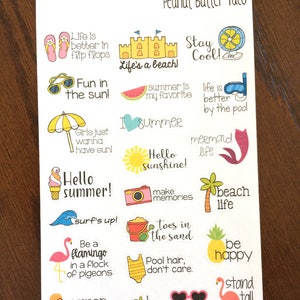 Peanut Butter Taco
Life is
better in
flip flops
Life's a beach!
Stay
Cool!
Fun in
the sun!
summer is
my favorite
life is
better
by the pool
Girls just
wanna
have sun!
I summer
mermaid
life
Hello
sunshine!
Hello
summer!
make
memories
beach
life
surf's up!
toes in
the sand
Be a
flamingo
in a flock
of pigeons
Pool hair,
don't care.
be
happy
stand
tall